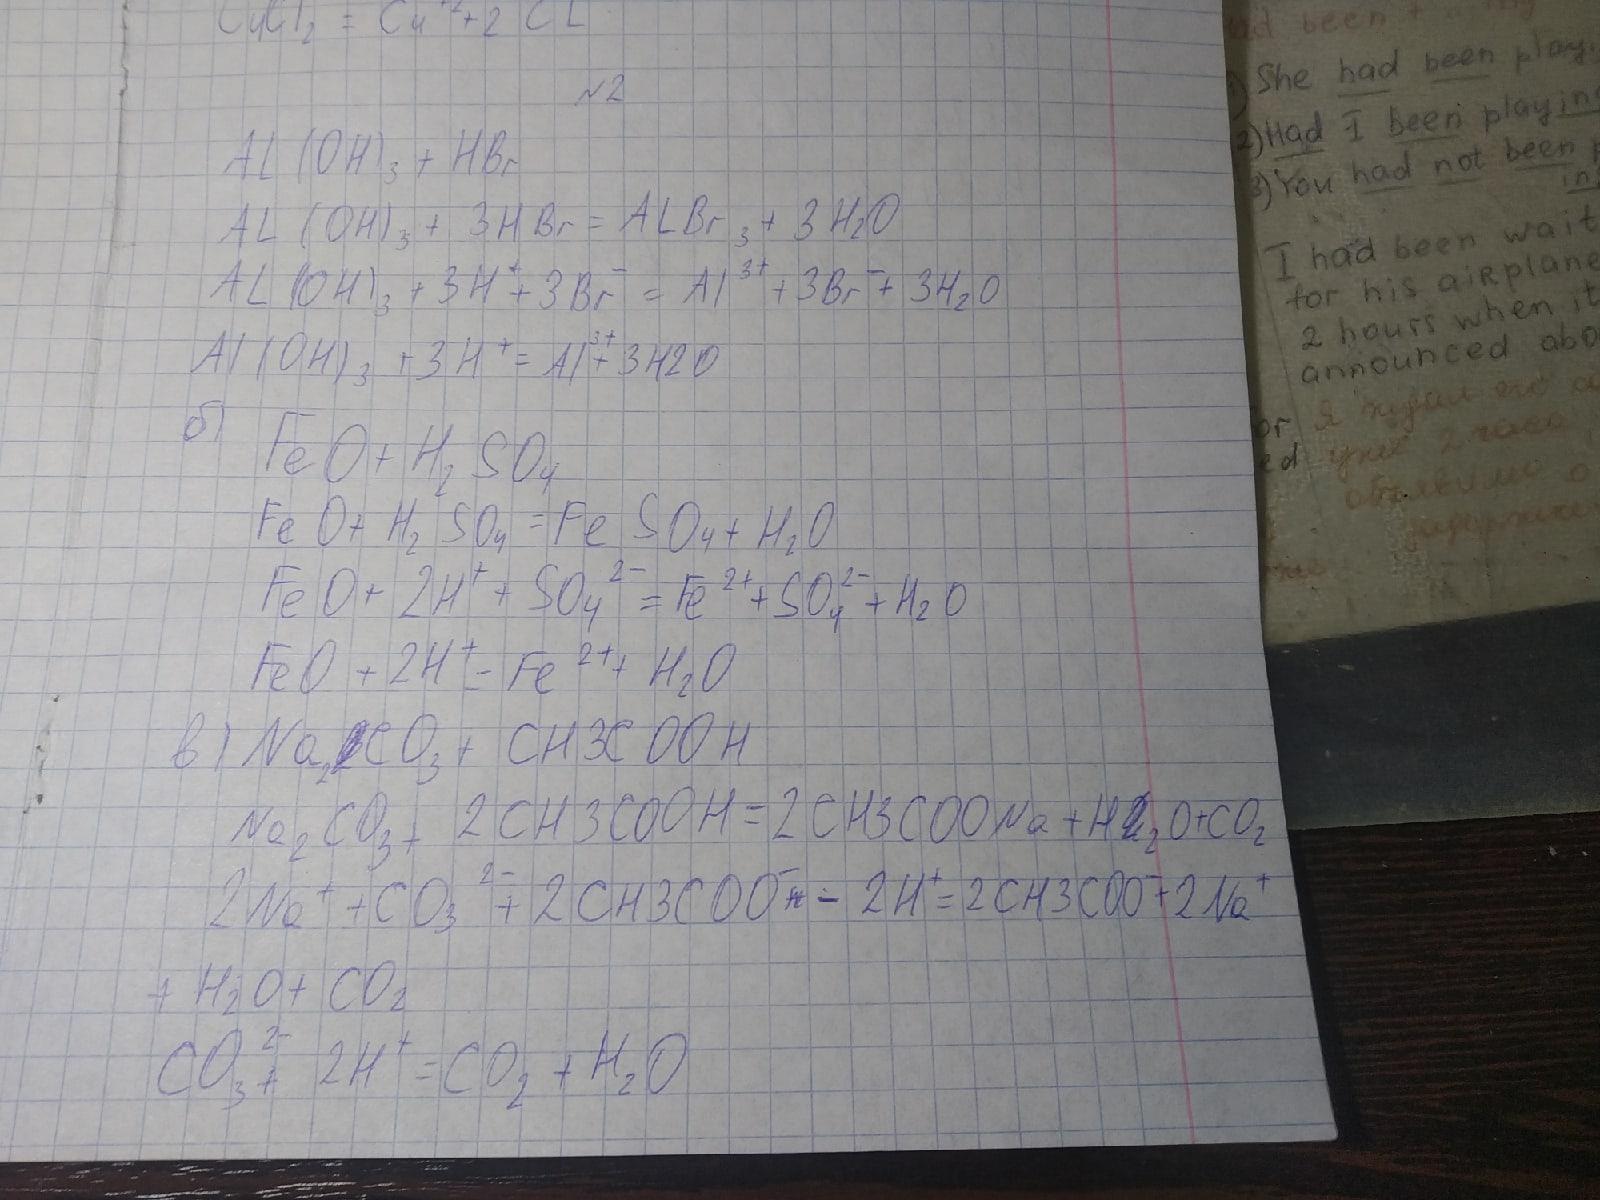 CuCl₂ = Cu⁺² + 2 CL
№2
AL(OH)₃ + HBr
AL(OH)₃ + 3HBr = ALBr₃ + 3H₂O
AL(OH)₃ + 3H⁺ + 3Br⁻ = Al³⁺ + 3Br⁻ + 3H₂O
Al(OH)₃ + 3H⁺ = Al³⁺ + 3H2O
б) FeO + H₂SO₄
FeO + H₂SO₄ = FeSO₄ + H₂O
FeO + 2H⁺ + SO₄²⁻ = Fe²⁺ + SO₄²⁻ + H₂O
FeO + 2H⁺ = Fe²⁺ + H₂O
в) Na₂CO₃ + CH3COOH
Na₂CO₃ + 2CH3COOH = 2CH3COONa + H₂O + CO₂
2Na⁺ + CO₃²⁻ + 2CH3COO⁻ - 2H⁺ = 2CH3COO⁻ + 2Na⁺
+ H₂O + CO₂
CO₃²⁻ + 2H⁺ = CO₂ + H₂O
had been +
1) She had been play
2) Had I been playing
3) You had not been p
ing
I had been wait
for his airplane
2 hours when it
announced abo
or Я ждал его
ed уже 2 часа
объявили о